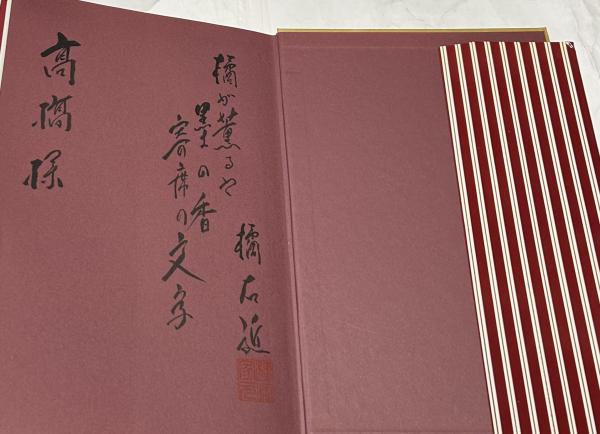 橘が薫るや
墨の香
寄席の文字
橘右近
高橋様